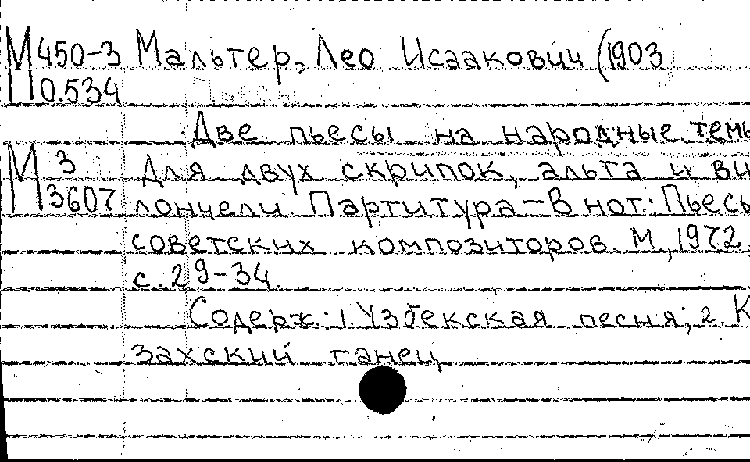 М450-3 Мальтер, Лео Исаакович (1903
П0.534
Две пьесы на народные темы
М 3 Для двух скрипок, альта и ви
П 3607 лончели. Партитура – В нот: Пьесы
советских композиторов. М., 1972,
с. 29-34.
Содерж.: 1 Узбекская песня; 2. К
захский танец